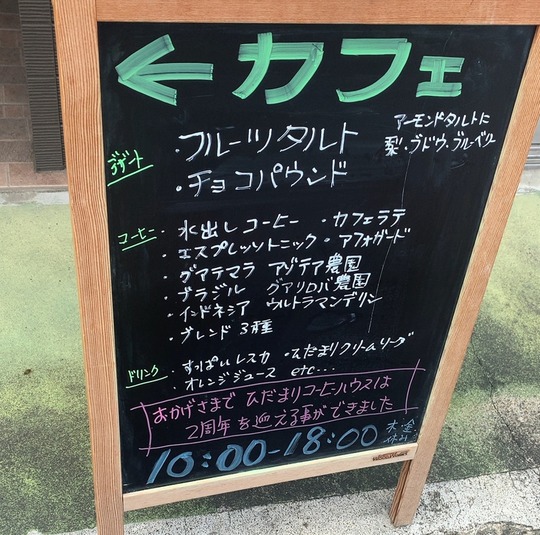 ← カフェ
デザート
・フルーツタルト
アーモンドタルトに
梨、ブドウ、ブルーベリー
・チョコパウンド
コーヒー
・水出しコーヒー ・カフェラテ
・エスプレッソトニック ・アフォガード
・グアテマラ アゾテア農園
・ブラジル グアリロバ農園
・インドネシア ウルトラマンデリン
・ブレンド 3種
ドリンク
・すっぱいレスカ ・ひだまりクリームソーダ
・オレンジジュース etc...
おかげさまで ひだまりコーヒーハウスは
2周年を迎える事ができました
10:00-18:00
木・金
休み